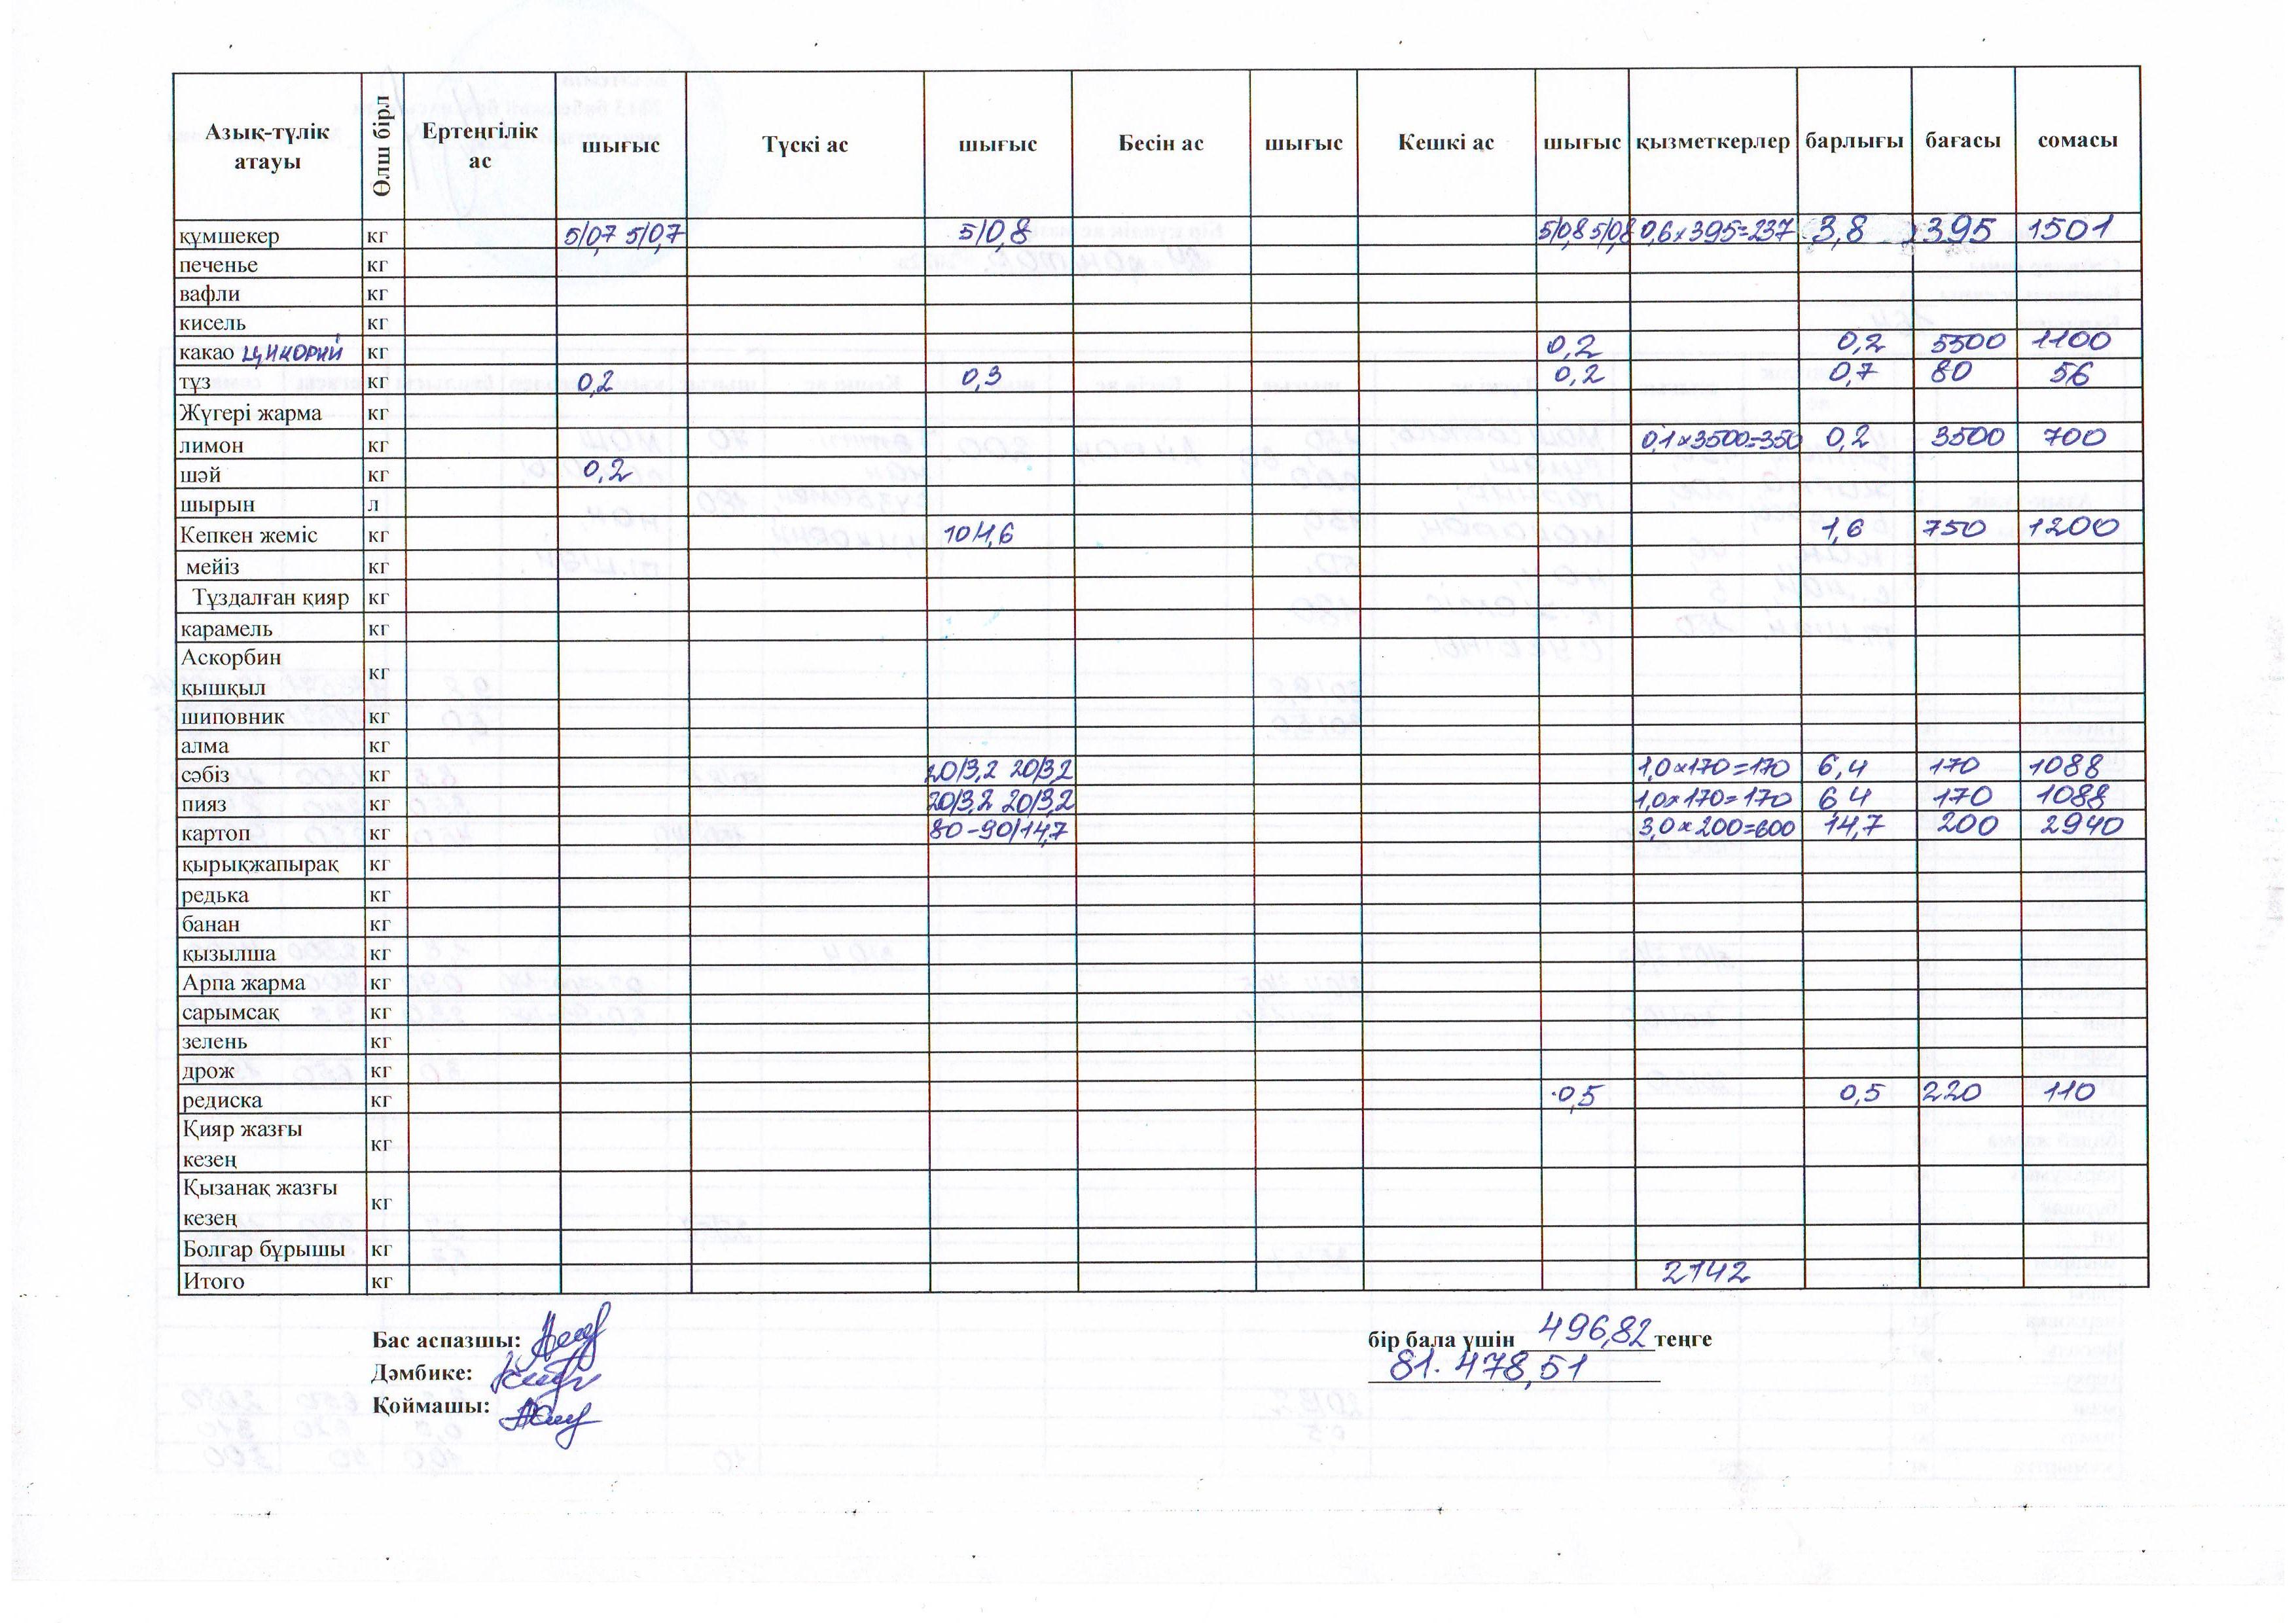 Азық-түлік атауы Өлш бірл Ертеңгілік ас шығыс Түскі ас шығыс Бесін ас шығыс Кешкі ас шығыс қызметкерлер барлығы бағасы сомасы
құмшекер кг 5/0,7 5/0,7 5/0,8 5/0,8 5/0,8 0,6х395=237 3,8 х395 1501
печенье кг
вафли кг
кисель кг
какао цикорий кг 0,2 0,2 5500 1100
тұз кг 0,2 0,3 0,2 0,7 80 56
Жүгері жарма кг
лимон кг 0,1х3500=350 0,2 3500 700
шәй кг 0,2
шырын л
Кепкен жеміс кг 10/1,6 1,6 750 1200
мейіз кг
Тұздалған қияр кг
карамель кг
Аскорбин қышқыл кг
шиповник кг
алма кг
сәбіз кг 20/3,2 20/3,2 1,0х170=170 6,4 170 1088
пияз кг 20/3,2 20/3,2 1,0х170=170 6 4 170 1088
картоп кг 80-90/14,7 3,0х200=600 14,7 200 2940
қырықжапырақ кг
редька кг
банан кг
қызылша кг
Арпа жарма кг
сарымсақ кг
зелень кг
дрож кг
редиска кг 0,5 0,5 220 110
Қияр жазғы кезең кг
Қызанақ жазғы кезең кг
Болгар бұрышы кг
Итого кг 2142
Бас аспазшы: бір бала үшін 496,82 теңге
Дәмбике: 81.478,51
Қоймашы: